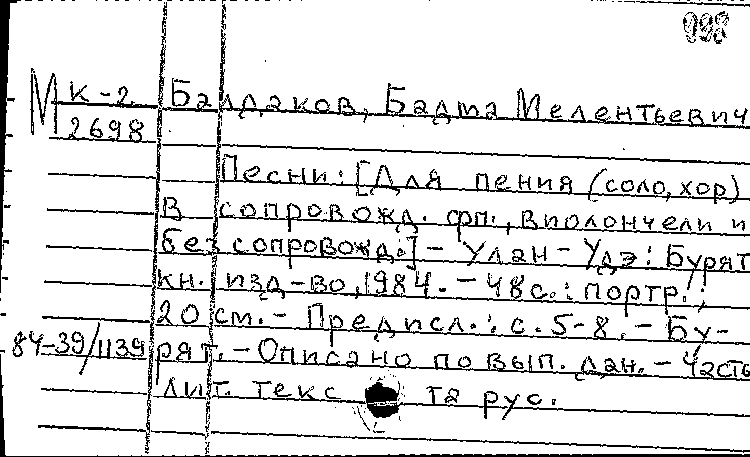 098
М К-2 Балдаков, Бадма Мелентьевич
2698
Песни: [Для пения (соло, хор)
в сопровожд. фп., виолончели и
без сопровожд.] - Улан-Удэ: Бурят
кн. изд-во, 1984. - 48 с.: портр.;
20 см. - Предисл.: с. 5-8. - Бу-
84-39/1139 рят. - Описано по вып. дан. - Часть
лит. текс та рус.